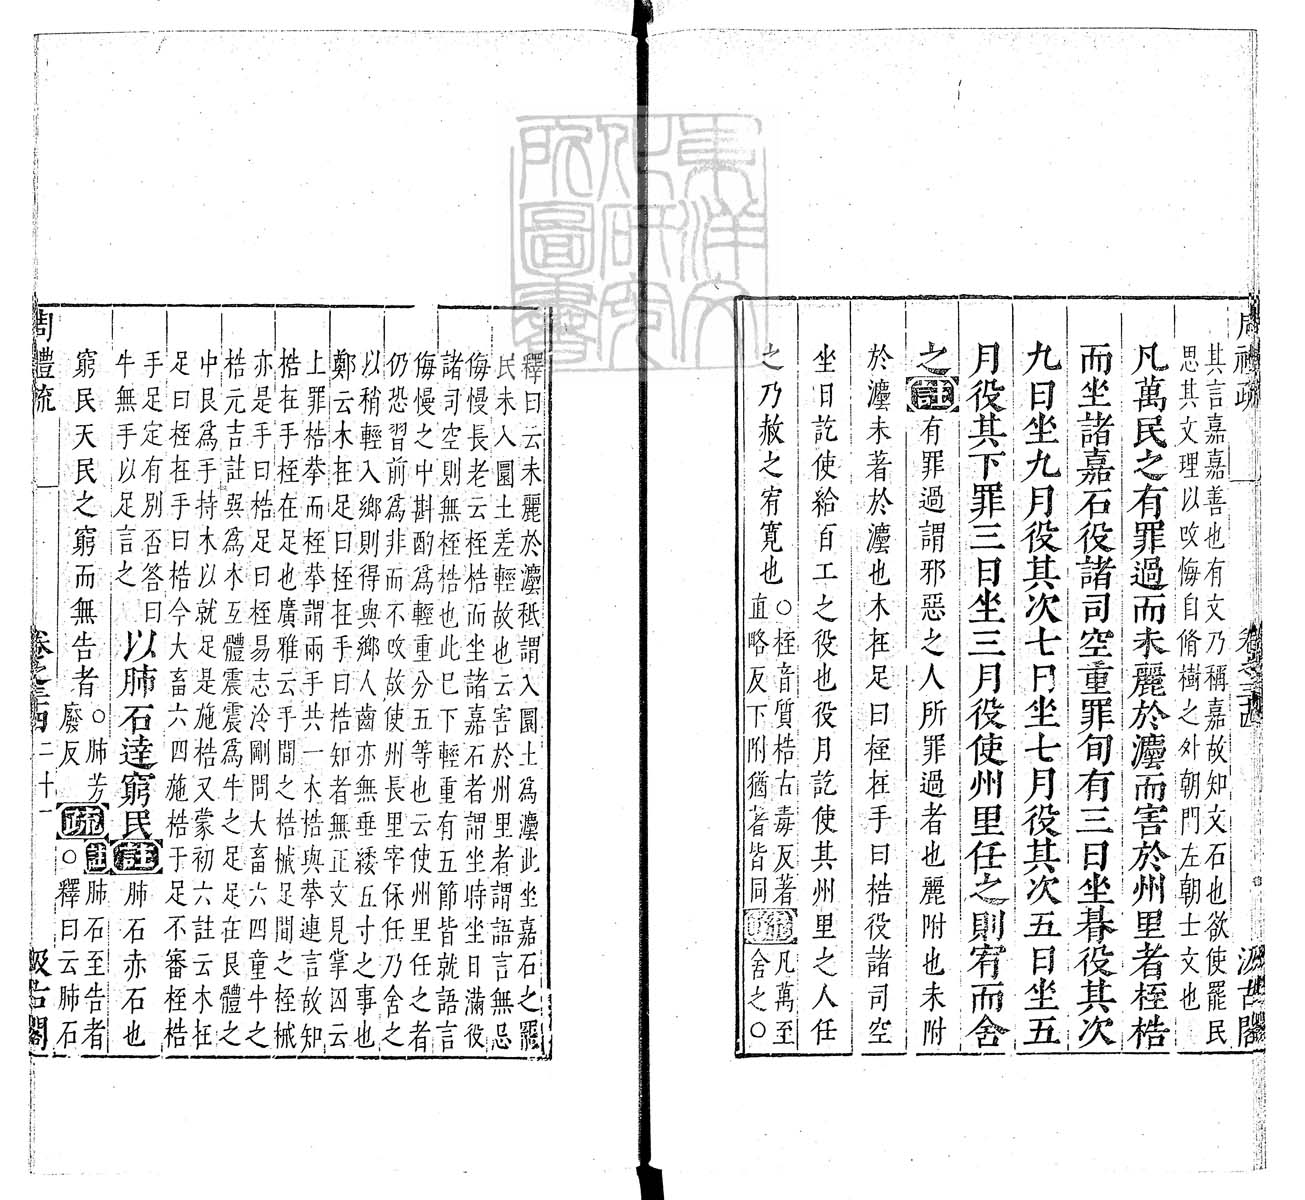 周禮疏
卷之三十四
汲古閣
其言嘉嘉善也有文乃稱嘉故知文石也欲使罷民
思其文理以攺悔自脩樹之外朝門左朝士文也
凡萬民之有罪過而未麗於灋而害於州里者桎梏
而坐諸嘉石役諸司空重罪旬有三日坐朞役其次
九日坐九月役其次七日坐七月役其次五日坐五
月役其下罪三日坐三月役使州里任之則宥而舍
之註有罪過謂邪惡之人所罪過者也麗附也未附
於灋未著於灋也木在足曰桎在手曰梏役諸司空
坐日訖使給百工之役也役月訖使其州里之人任
之乃赦之宥寬也
○桎音質梏古毒反著
直略反下附猶著皆同
疏
凡萬至
舍之○
釋曰云未麗於灋秖謂入圜土爲灋此坐嘉石之罷
民未入圜土差輕故也云害於州里者謂語言無忌
侮慢長老云桎梏而坐諸嘉石者謂坐時坐日滿役
諸司空則無桎梏也此巳下輕重有五節皆就語言
侮慢之中斟酌爲輕重分五等也云使州里任之者
仍恐習前爲非而不攺故使州長里宰保任乃舍之
以稍輕入鄉則得與鄉人齒亦無垂緌五寸之事也
鄭云木在足曰桎在手曰梏知者無正文見掌囚云
上罪梏拲而桎拲謂兩手共一木梏與拲連言故知
梏在手桎在足也廣雅云手閒之梏械足閒之桎械
亦是手曰梏足曰桎易志泠剛問大畜六四童牛之
梏元吉註巽爲木互體震震爲牛之足足在艮體之
中艮爲手持木以就足是施梏又蒙初六註云木在
足曰桎在手曰梏今大畜六四施梏于足不審桎梏
手足定有別否答曰
牛無手以足言之
以肺石達窮民註肺石赤石也
窮民天民之窮而無告者
○肺芳
廢反
疏
註肺石至告者
○釋曰云肺石
周禮疏
卷之三十四
二十一
汲古閣